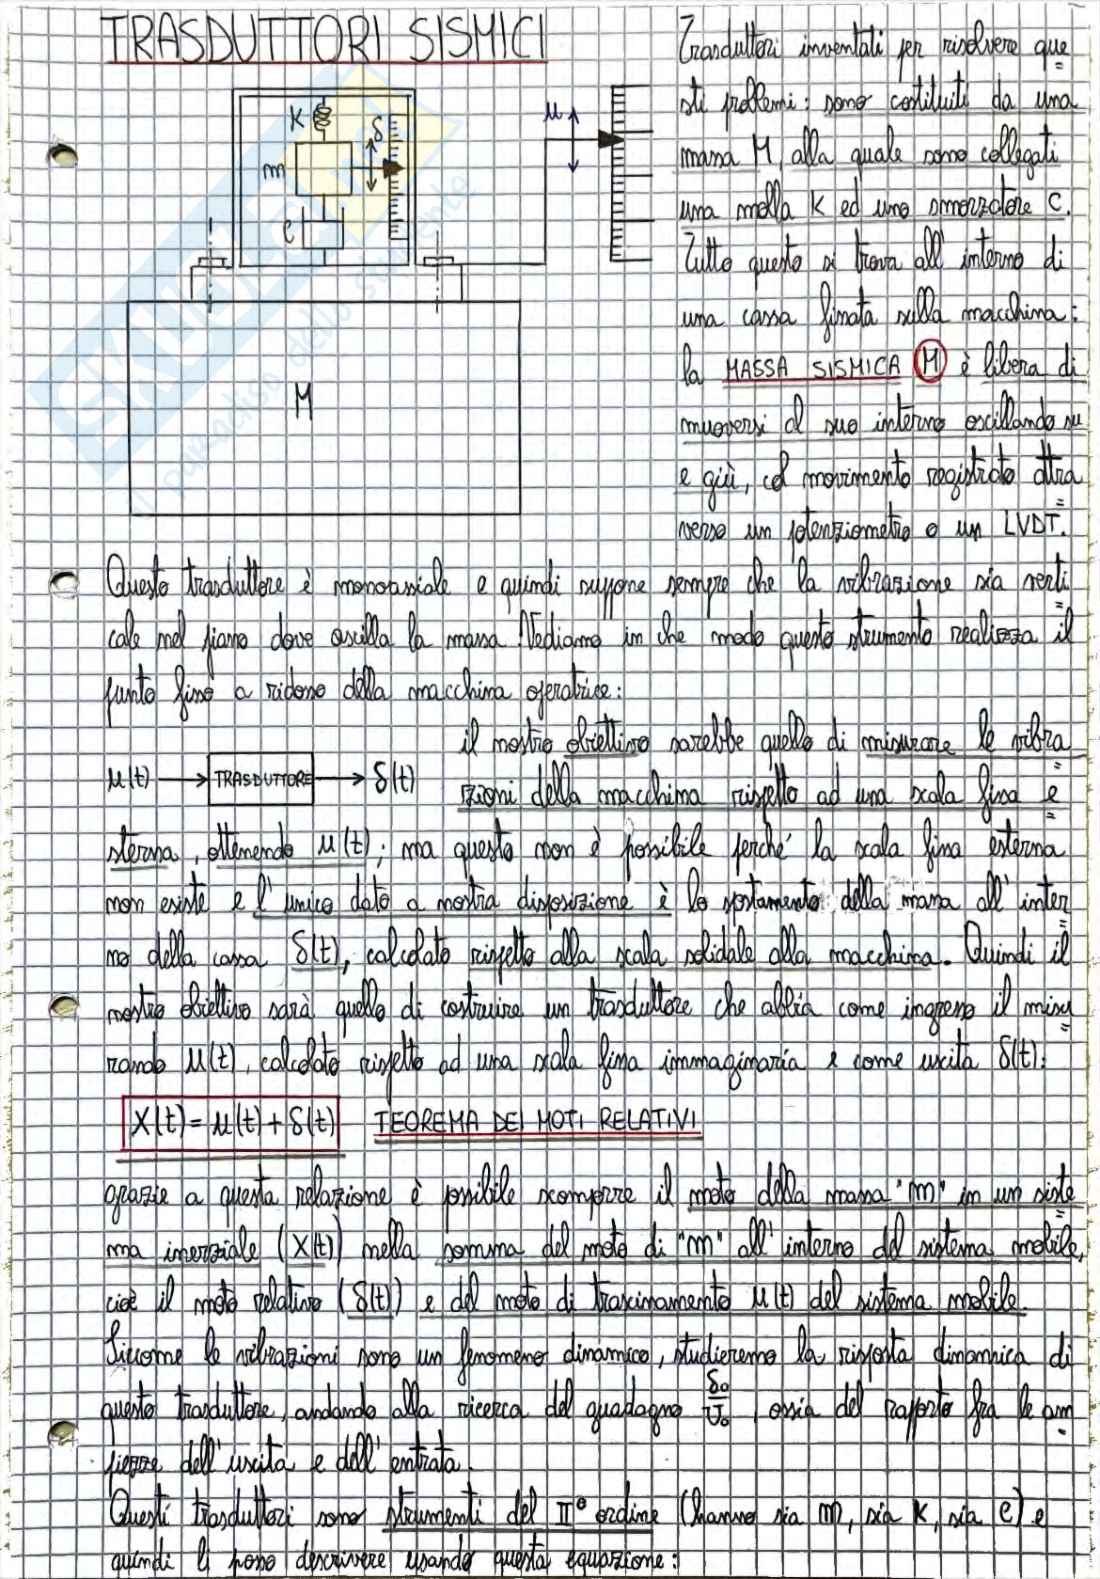 TRASDUTTORI SISMICI
Trasduttori inventati per risolvere que
sti problemi: sono costituiti da una
massa M, alla quale sono collegati
una molla K ed uno smorzatore c.
Tutto questo si trova all' interno di
una cassa fissata sulla macchina:
la MASSA SISMICA M è libera di
muoversi al suo interno oscillando su
e giù, col movimento registrato attra
verso un potenziometro o un LVDT.
K
δ
m
c
μ
M
Questo trasduttore è monoassiale e quindi suppone sempre che la vibrazione sia verti
cale nel piano dove oscilla la massa. Vediamo in che modo questo strumento realizza il
punto fisso a ridosso della macchina operatrice:
μ(t) → TRASDUTTORE → δ(t)
il nostro obiettivo sarebbe quello di misurare le vibra
zioni della macchina rispetto ad una scala fissa e
sterna, ottenendo μ(t); ma questo non è possibile perché la scala fissa esterna
non esiste e l'unico dato a nostra disposizione è lo spostamento della massa all' inter
no della cassa δ(t), calcolato rispetto alla scala solidale alla macchina. Quindi il
nostro obiettivo sarà quello di costruire un trasduttore che abbia come ingresso il misu
rando μ(t), calcolato rispetto ad una scala fissa immaginaria e come uscita δ(t):
X(t) = μ(t) + δ(t) TEOREMA DEI MOTI RELATIVI
grazie a questa relazione è possibile scomporre il moto della massa "m" in un siste
ma inerziale (X(t)) nella somma del moto di "m" all' interno del sistema mobile,
cioè il moto relativo (δ(t)) e del moto di trascinamento μ(t) del sistema mobile.
Siccome le vibrazioni sono un fenomeno dinamico, studieremo la risposta dinamica di
questo trasduttore, andando alla ricerca del guadagno δo/Uo, ossia del rapporto fra le am
piezze dell'uscita e dell' entrata.
Questi trasduttori sono strumenti del II° ordine (hanno sia m, sia K, sia c) e
quindi li posso descrivere usando questa equazione:
SKUOLA.net
il paradiso dello studente